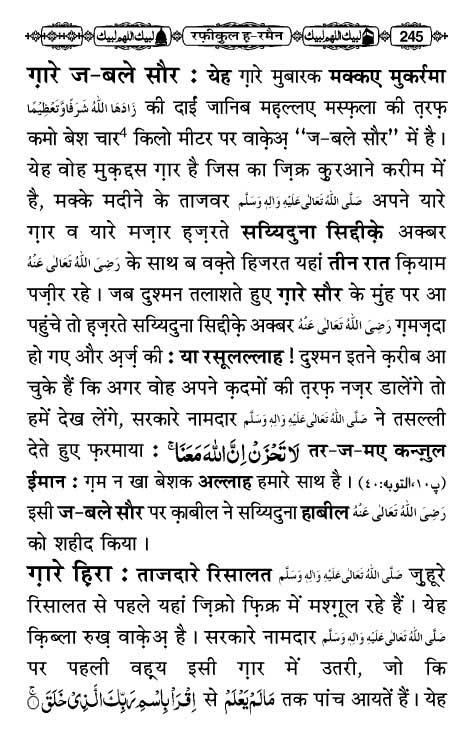 لبيك اللهم لبيك रफ़ीकुल ह-रमैन لبيك اللهم لبيك 245
ग़ारे ज-बले सौर : येह ग़ारे मुबारक मक्कए मुकर्रमा
زَادَهَا اللهُ شَرَفًا وَّتَعْظِيْمًا की दाईं जानिब महल्लए मस्फ़ला की त़रफ़
कमो बेश चार4 किलो मीटर पर वाक़ेअ़ “ज-बले सौर” में है ।
येह वोह मुक़द्दस ग़ार है जिस का ज़िक्र क़ुरआने करीम में
है, मक्के मदीने के ताजवर صَلَّى اللهُ تَعَالٰى عَلَيْهِ وَاٰلِهٖ وَسَلَّم अपने यारे
ग़ार व यारे मज़ार ह़ज़रते सय्यिदुना सिद्दीक़े अक्बर
رَضِىَ اللهُ تَعَالٰى عَنْهُ के साथ ब वक़्ते हिजरत यहां तीन रात क़ियाम
पज़ीर रहे । जब दुश्मन तलाशते हुए ग़ारे सौर के मुंह पर आ
पहुंचे तो ह़ज़रते सय्यिदुना सिद्दीक़े अक्बर رَضِىَ اللهُ تَعَالٰى عَنْهُ ग़मज़दा
हो गए और अ़र्ज़ की : या रसूलल्लाह ! दुश्मन इतने क़रीब आ
चुके हैं कि अगर वोह अपने क़दमों की त़रफ़ नज़र डालेंगे तो
हमें देख लेंगे, सरकारे नामदार صَلَّى اللهُ تَعَالٰى عَلَيْهِ وَاٰلِهٖ وَسَلَّم ने तसल्ली
देते हुए फ़रमाया : لَا تَحْزَنْ اِنَّ اللّٰهَ مَعَنَاۚ तर-ज-मए कन्ज़ुल
ईमान : ग़म न खा बेशक अल्लाह हमारे साथ है । (پ١٠،التوبه:٤٠)
इसी ज-बले सौर पर क़ाबील ने सय्यिदुना हाबील رَضِىَ اللهُ تَعَالٰى عَنْهُ
को शहीद किया ।
ग़ारे ह़िरा : ताजदारे रिसालत صَلَّى اللهُ تَعَالٰى عَلَيْهِ وَاٰلِهٖ وَسَلَّم ज़ुहूरे
रिसालत से पहले यहां ज़िक्रो फ़िक्र में मश्ग़ूल रहे हैं । येह
क़िब्ला रुख़ वाक़ेअ़ है । सरकारे नामदार صَلَّى اللهُ تَعَالٰى عَلَيْهِ وَاٰلِهٖ وَسَلَّم
पर पहली वह़्य इसी ग़ार में उतरी, जो कि
اِقْرَاْ بِاسْمِ رَبِّكَ الَّذِىْ خَلَقَۚ से مَالَمْ يَعْلَمْ तक पांच आयतें हैं । येह